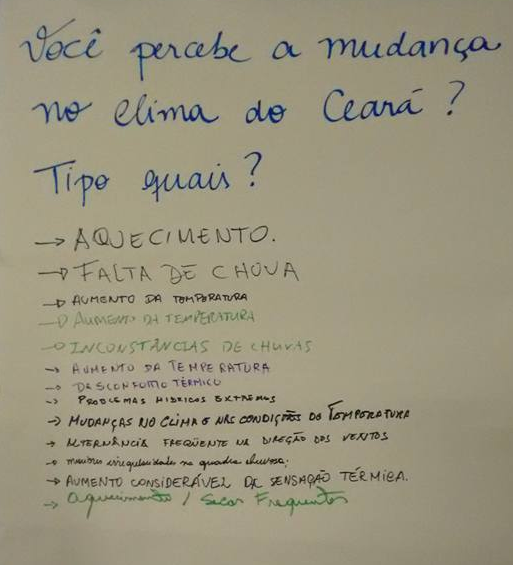 Você percebe a mudança
no clima do Ceará?
Tipo quais?
→ AQUECIMENTO.
→ FALTA DE CHUVA
→ AUMENTO DA TEMPERATURA
→ AUMENTO DA TEMPERATURA
→ INCONSTÂNCIAS DE CHUVAS
→ AUMENTO DA TEMPERATURA
→ DESCONFORTO TÉRMICO
→ PROBLEMAS HIDRICOS EXTREMOS
→ MUDANÇAS NO CLIMA E NAS CONDIÇÕES DO TEMPERATURA
→ ALTERNÂNCIA FREQÜENTE NA DIREÇÃO DOS VENTOS
→ maiores irregularidades na quadra chuvosa;
→ AUMENTO CONSIDERÁVEL DA SENSAÇÃO TÉRMICA.
→ Aquecimento / Secas Frequentes